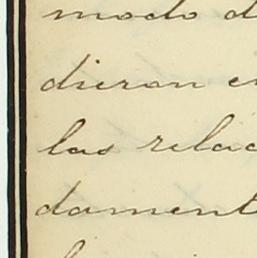 modo d
dieron e
las relac
dament